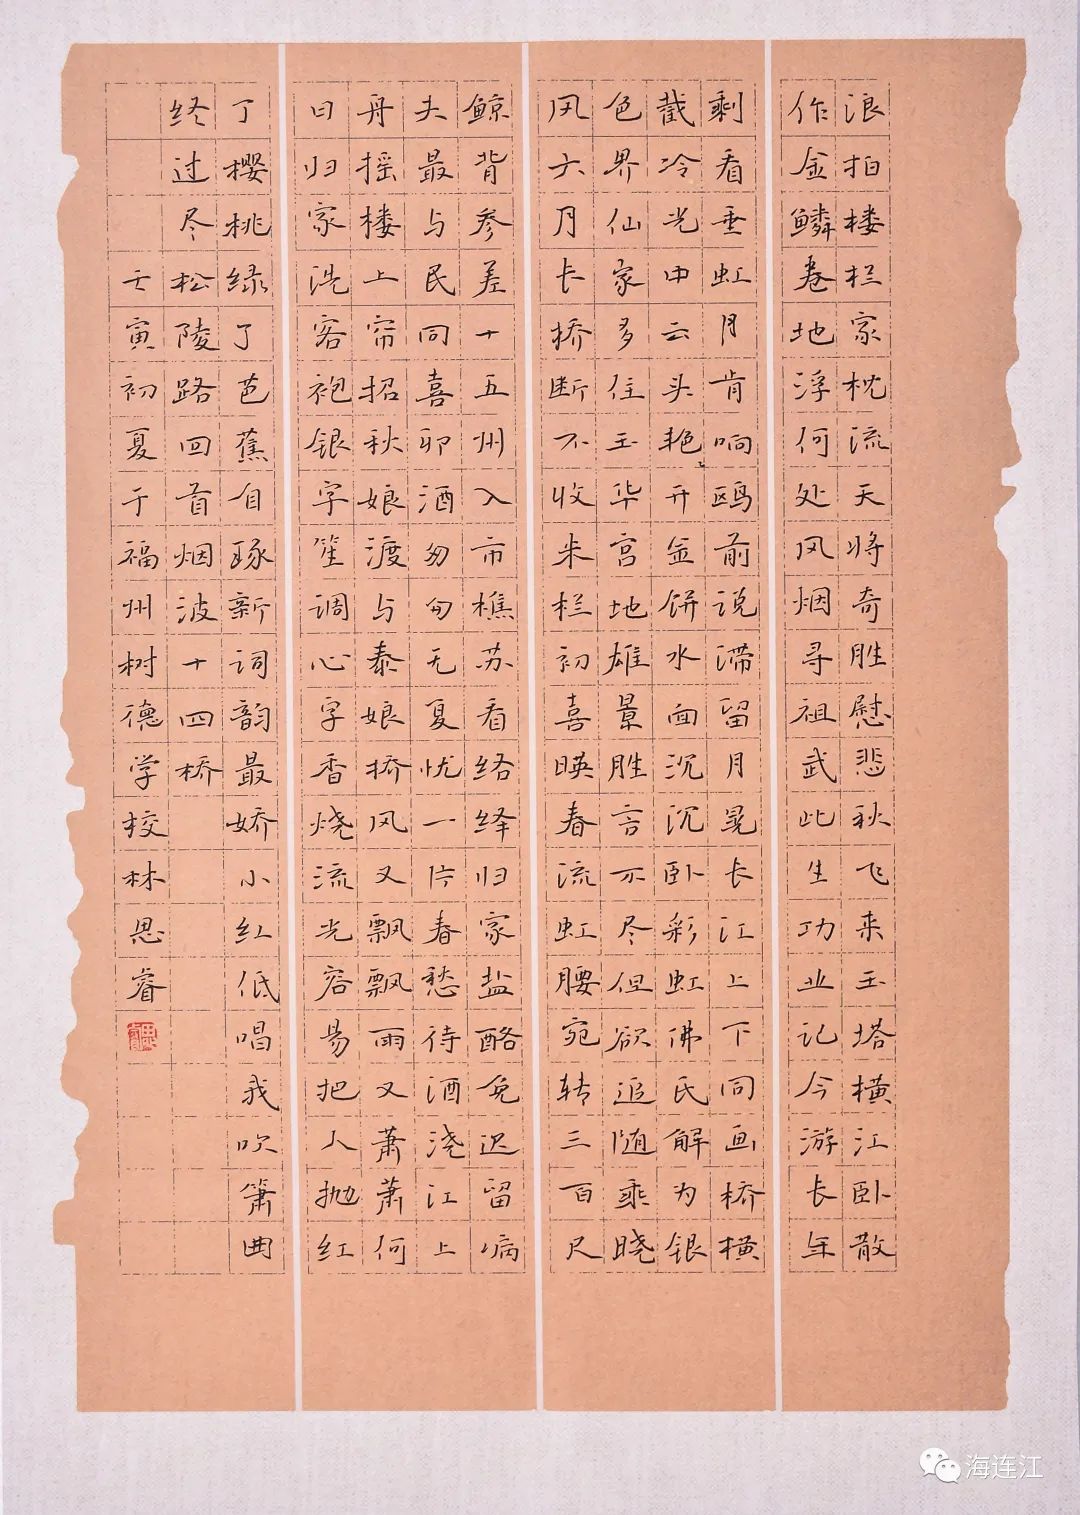 浪拍楼栏家枕流天将奇胜慰悲秋飞来玉塔横江卧散
作金鳞卷地浮何处风烟寻祖武此生功业记今游长年
剩看垂虹月肯响鸥前说滞留月晃长江上下同画桥横
截冷光中云头艳开金饼水面沉沉卧彩虹佛氏解为银
色界仙家多住玉华宫地雄景胜言不尽但欲追随乘晓
风六月长桥断不收朱栏初喜映春流虹腰宛转三百尺
鲸背参差十五州入市樵苏看络绎归家盐酪免迟留病
夫最与民同喜卯酒匆匆无夏忧一片春愁待酒浇江上
舟摇楼上帘招秋娘渡与泰娘桥风又飘飘雨又萧萧何
日归家洗客袍银字笙调心字香烧流光容易把人抛红
了樱桃绿了芭蕉自琢新词韵最娇小红低唱我吹箫曲
终过尽松陵路回首烟波十四桥
壬寅初夏于福州树德学校林思睿
海连江